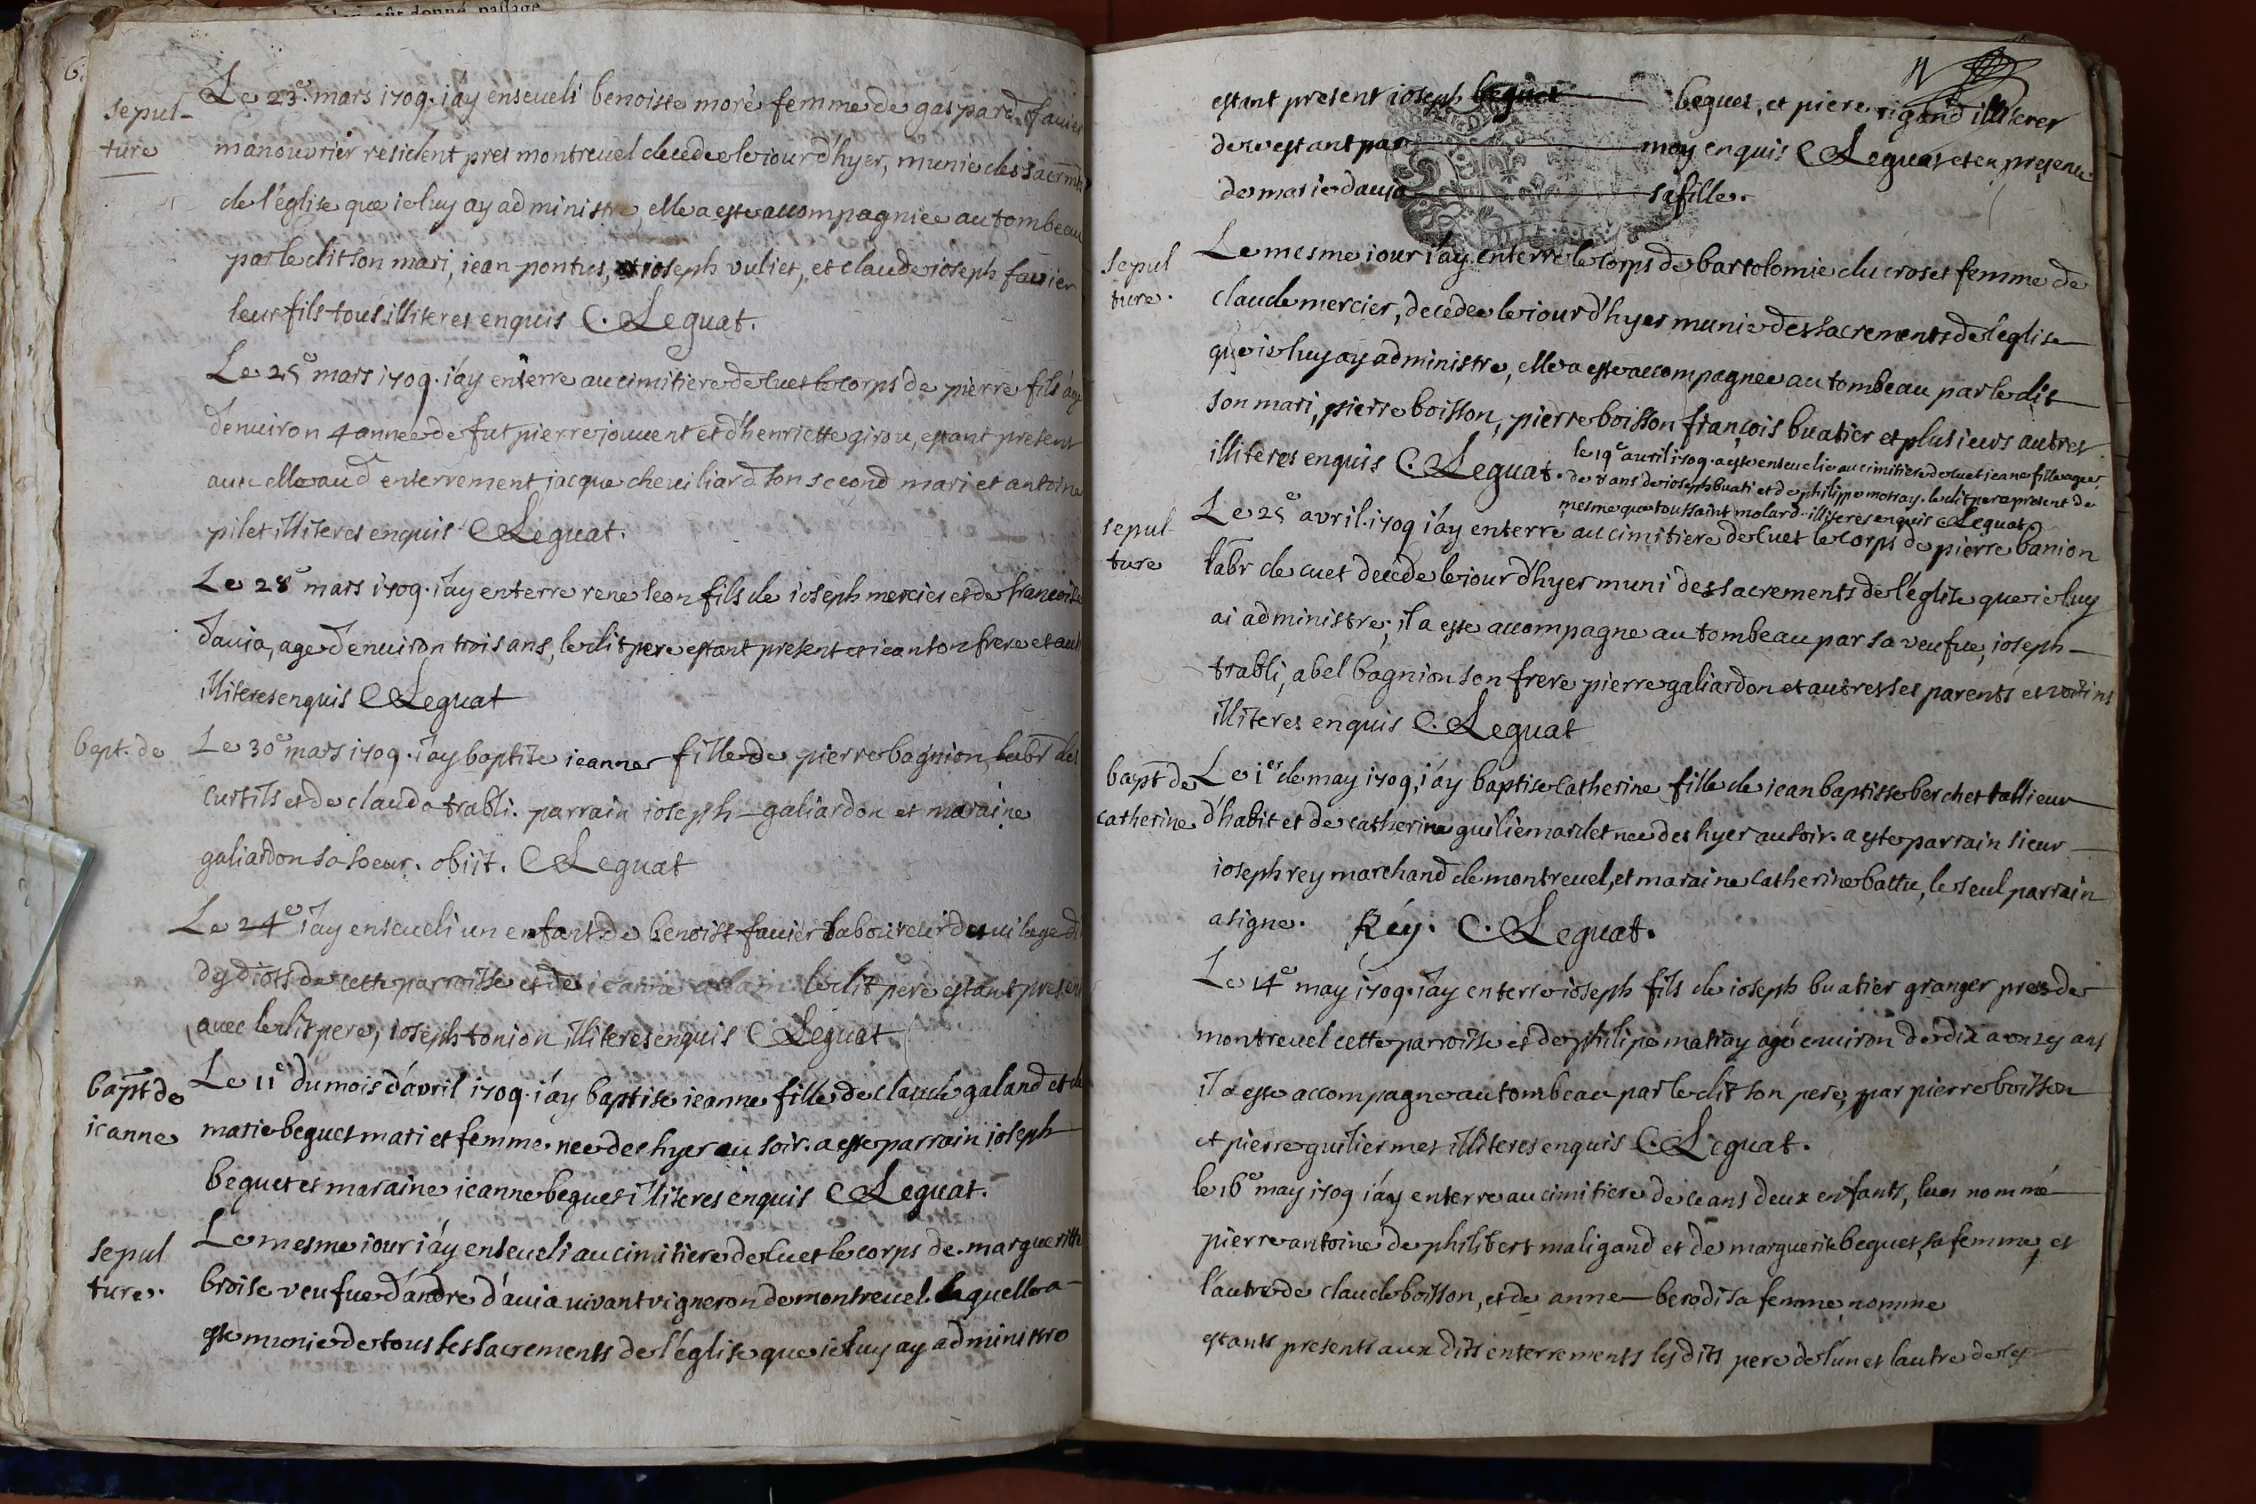 sepul-
ture
Le 23e mars 1709. i'ay enseveli benoiste morè femme de gaspard favier
manouvrier resident pres montrevel decedee le iour d'hyer, munie des sacrmts
de l'eglise que ie luy ay administre, elle a este accompagniee au tombeau
par le dit son mari, iean pontus, et ioseph vuliet, et claude ioseph favier
leur fils tous illiteres enquis C. Leguat.
Le 25e mars 1709. i'ay enterre au cimitiere de cuet le corps de pierre fils age
denuiron 4 annee de fut pierre jouvent et d'henriette girou, estant present
avec elle aud enterrement jacque cheviliard son second mari et antoine
pilet illiteres enquis C Leguat.
Le 28e mars 1709. i'ay enterre rene leon fils de ioseph mercier et de francoise
davia, age denuiron trois ans, le dit pere estant present et iean son frere et aut
illiteres enquis C Leguat
bapt. de
Le 30e mars 1709. i'ay baptise ieanne fille de pierre bagnion, labr des
curtils et de clauda trabli. parrain ioseph galiardon et maraine
galiardon sa soeur. obiit. C Leguat
Le 24e i'ay enseveli un enfant de benoist favier laboureur du vilage d
dydiots de cette parroisse et de ieanne le dit pere estant present
avec le dit pere, ioseph tonion illiteres enquis C Leguat
bapt de
ieanne
Le 11e du mois d'avril 1709. i'ay baptise ieanne fille de claude galand et de
marie beguet mari et femme. nee des hyer au soir. a este parrain ioseph
beguet et maraine ieanne beguet illiteres enquis C Leguat.
sepul
ture.
Le mesme iour i'ay enseveli au cimitiere de cuet le corps de marguerithe
broise veufue d'andre d'avia vivant vigneron de montrevel laquelle a
este munie de tous les sacrements de l'eglise que ie luy ay administre
estant present ioseph beguet beguet, et piere rigand illiterer
de ce estant par moy enquis C Leguat et en presence
de marie davia sa fille.
sepul
ture.
Le mesme iour i'ay enterre le corps de bartolomie du croset femme de
claude mercier, decedee le iour d'hyer munie des sacrements de l'eglise
que ie luy ay administre, elle a este accompagnee au tombeau par le dit
son mari, pierre boisson, pierre boisson françois buatier et plusieurs autres
illiteres enquis C. Leguat.
le 19e avril 1709. a este ensevelie au cimitiere de cuet ieanne fille agee
de ans de ioseph buati et de philipe matray. le dit pere present de
mesme que toussaint molard. illiteres enquis C Leguat
sepul
ture
Le 25e avril. 1709 i'ay enterre au cimitiere de cuet le corps de pierre banion
labr de cuet decede le iour d'hyer muni des sacrements de l'eglise que ie luy
ai administre, il a este accompagne au tombeau par sa veufue, ioseph
trabli, abel bagnion son frere pierre galiardon et autres ses parents et voisins
illiteres enquis C. Leguat
bapt de
catherine
Le 1er de may 1709, i'ay baptise catherine fille de iean baptisse berchet tallieur
d'habit et de catherine guiliemardet nee des hyer au soir. a este parrain sieur
ioseph rey marchand de montrevel, et maraine catherine battu, le seul parrain
a signe. Réy. C. Leguat.
Le 14e may 1709. i'ay enterre ioseph fils de ioseph buatier granger pres de
montrevel cette parroisse et de philipe matray agé environ de dix a onzes ans
il a este accompagne au tombeau par le dit son pere, par pierre boisson
et pierre guiliermet illiteres enquis C. Leguat.
le 16e may 1709 i'ay enterre au cimitiere de ceans deux enfants, l'un nommé
pierre antoine de philibert maligand et de marguerite beguet, sa femme, et
l'autre de claude boisson, et de anne berodi sa femme nomme
estants presents aux dits enterrements les dits pere de l'un et l'autre de ces